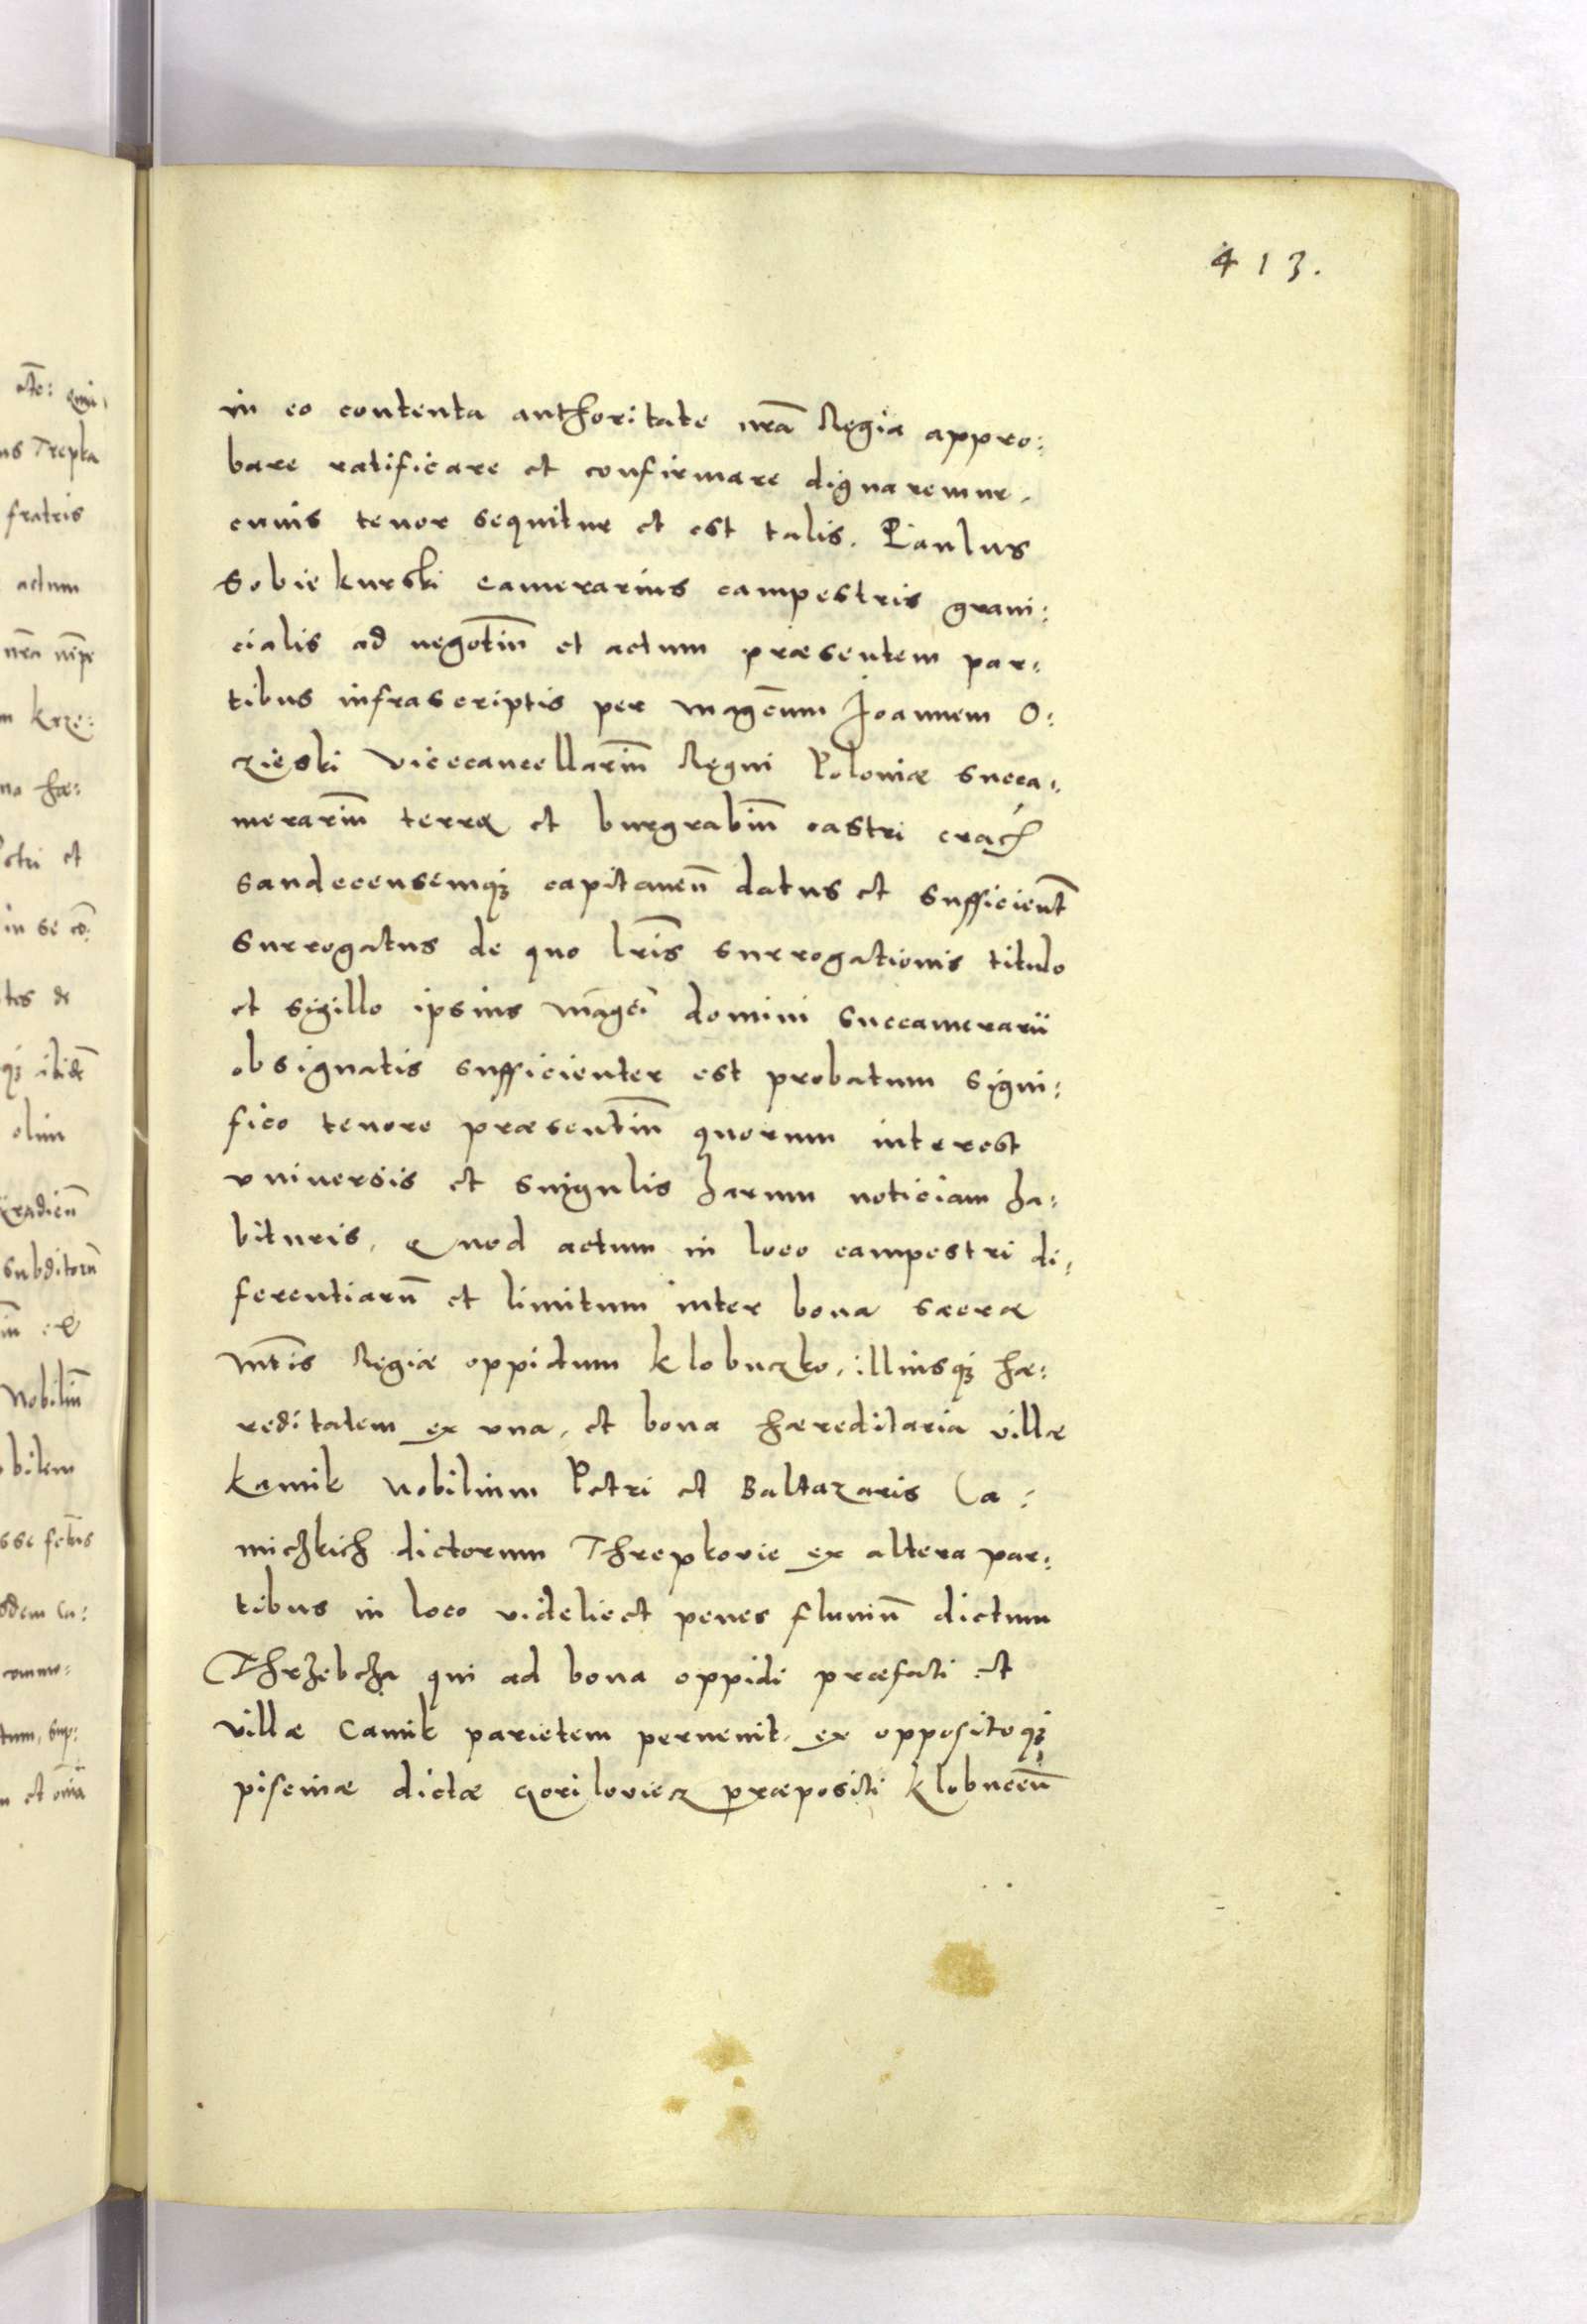 413.
in eo contenta authoritate nrã Regia appro:
bare ratificare et confirmare dignaremur,
cuius tenor sequitur et est talis. Paulus
Sobiekurski camerarius campestris grani:
cialis ad negotiũ et actum præsentem par:
tibus infrascriptis per magcum Joannem O:
czieski vicecancellariũ Regni Poloniæ succa:
merariũ terræ et burgrabiũ castri crac
Sandecensemq3 capitaneũ datus et sufficient
surrogatus de quo lris surrogationis titulo
et sigillo ipsius magci domini succamerarii
obsignatis sufficienter est probatum signi:
fico tenore præsentiũ quorum interest
universis et singulis harum noticiam ha:
bituris, Quod actum in loco campestri di:
ferentiarũ et limitum inter bona sacræ
Mtis Regiæ oppidum Klobuczko, illiusq3 hæ:
reditatem ex una, et bona hæreditaria villæ
Kamik Nobilium Petri et Baltazaris Ca:
miczkich dictorum Threpkovie ex altera par:
tibus in loco videlicet penes fluviũ dictum
Thrzebcza qui ad bona oppidi præfati et
villæ Camik parietem pervenit, ex oppositoq3
piscinæ dictæ Goriloviecz præpositi Klobuceñ
ns Trepka
fratris
actum
nra nipe
m Krze:
na hæ:
Petri et
in se co:
tes de
q3 ibide
olim
subditorũ
Nobiliũ
bilem
commo: